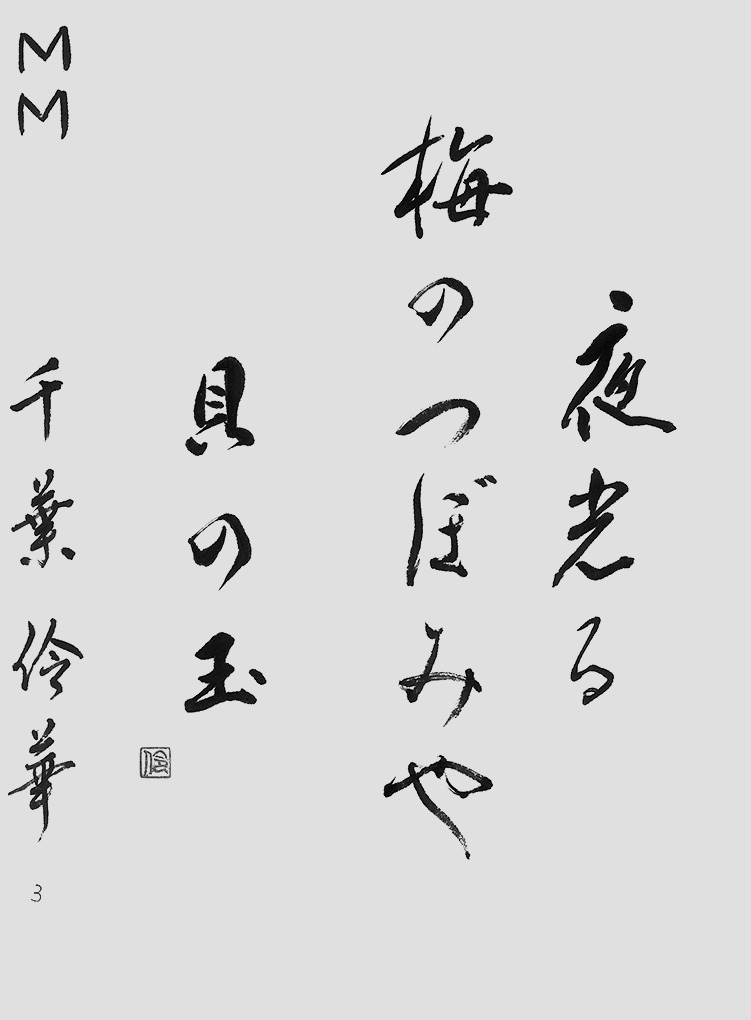 夜光る
梅のつぼみや
貝の玉
伶
MM
千葉伶華
3